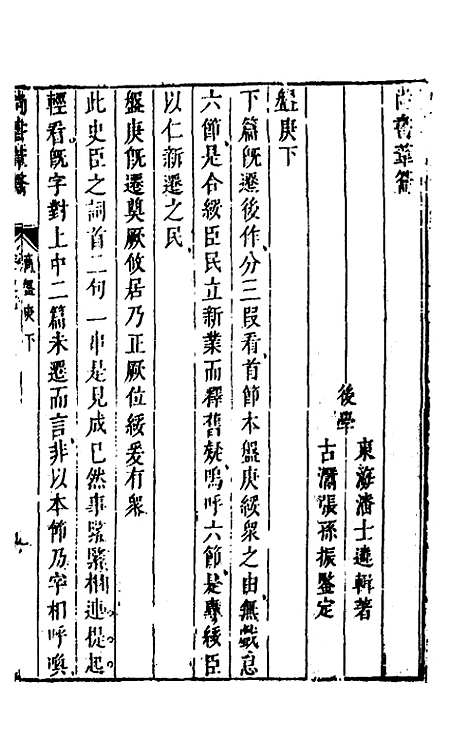 尚書葦籥
後學
東海潘士遴輯著
古潭張孫振鑒定
盤庚下
下篇既遷後作分三段看首節本盤庚綏衆之由無戲怠
六節是合綏臣民立新業而釋舊疑嗚呼六節是專綏臣
以仁新遷之民
盤庚既遷奠厥攸居乃正厥位綏爰有衆
此史臣之詞首二句一串是見成已然事緊緊相連提起
輕看既字對上中二篇未遷而言非以本節乃字相呼喚
尚書葦籥
商盤庚下